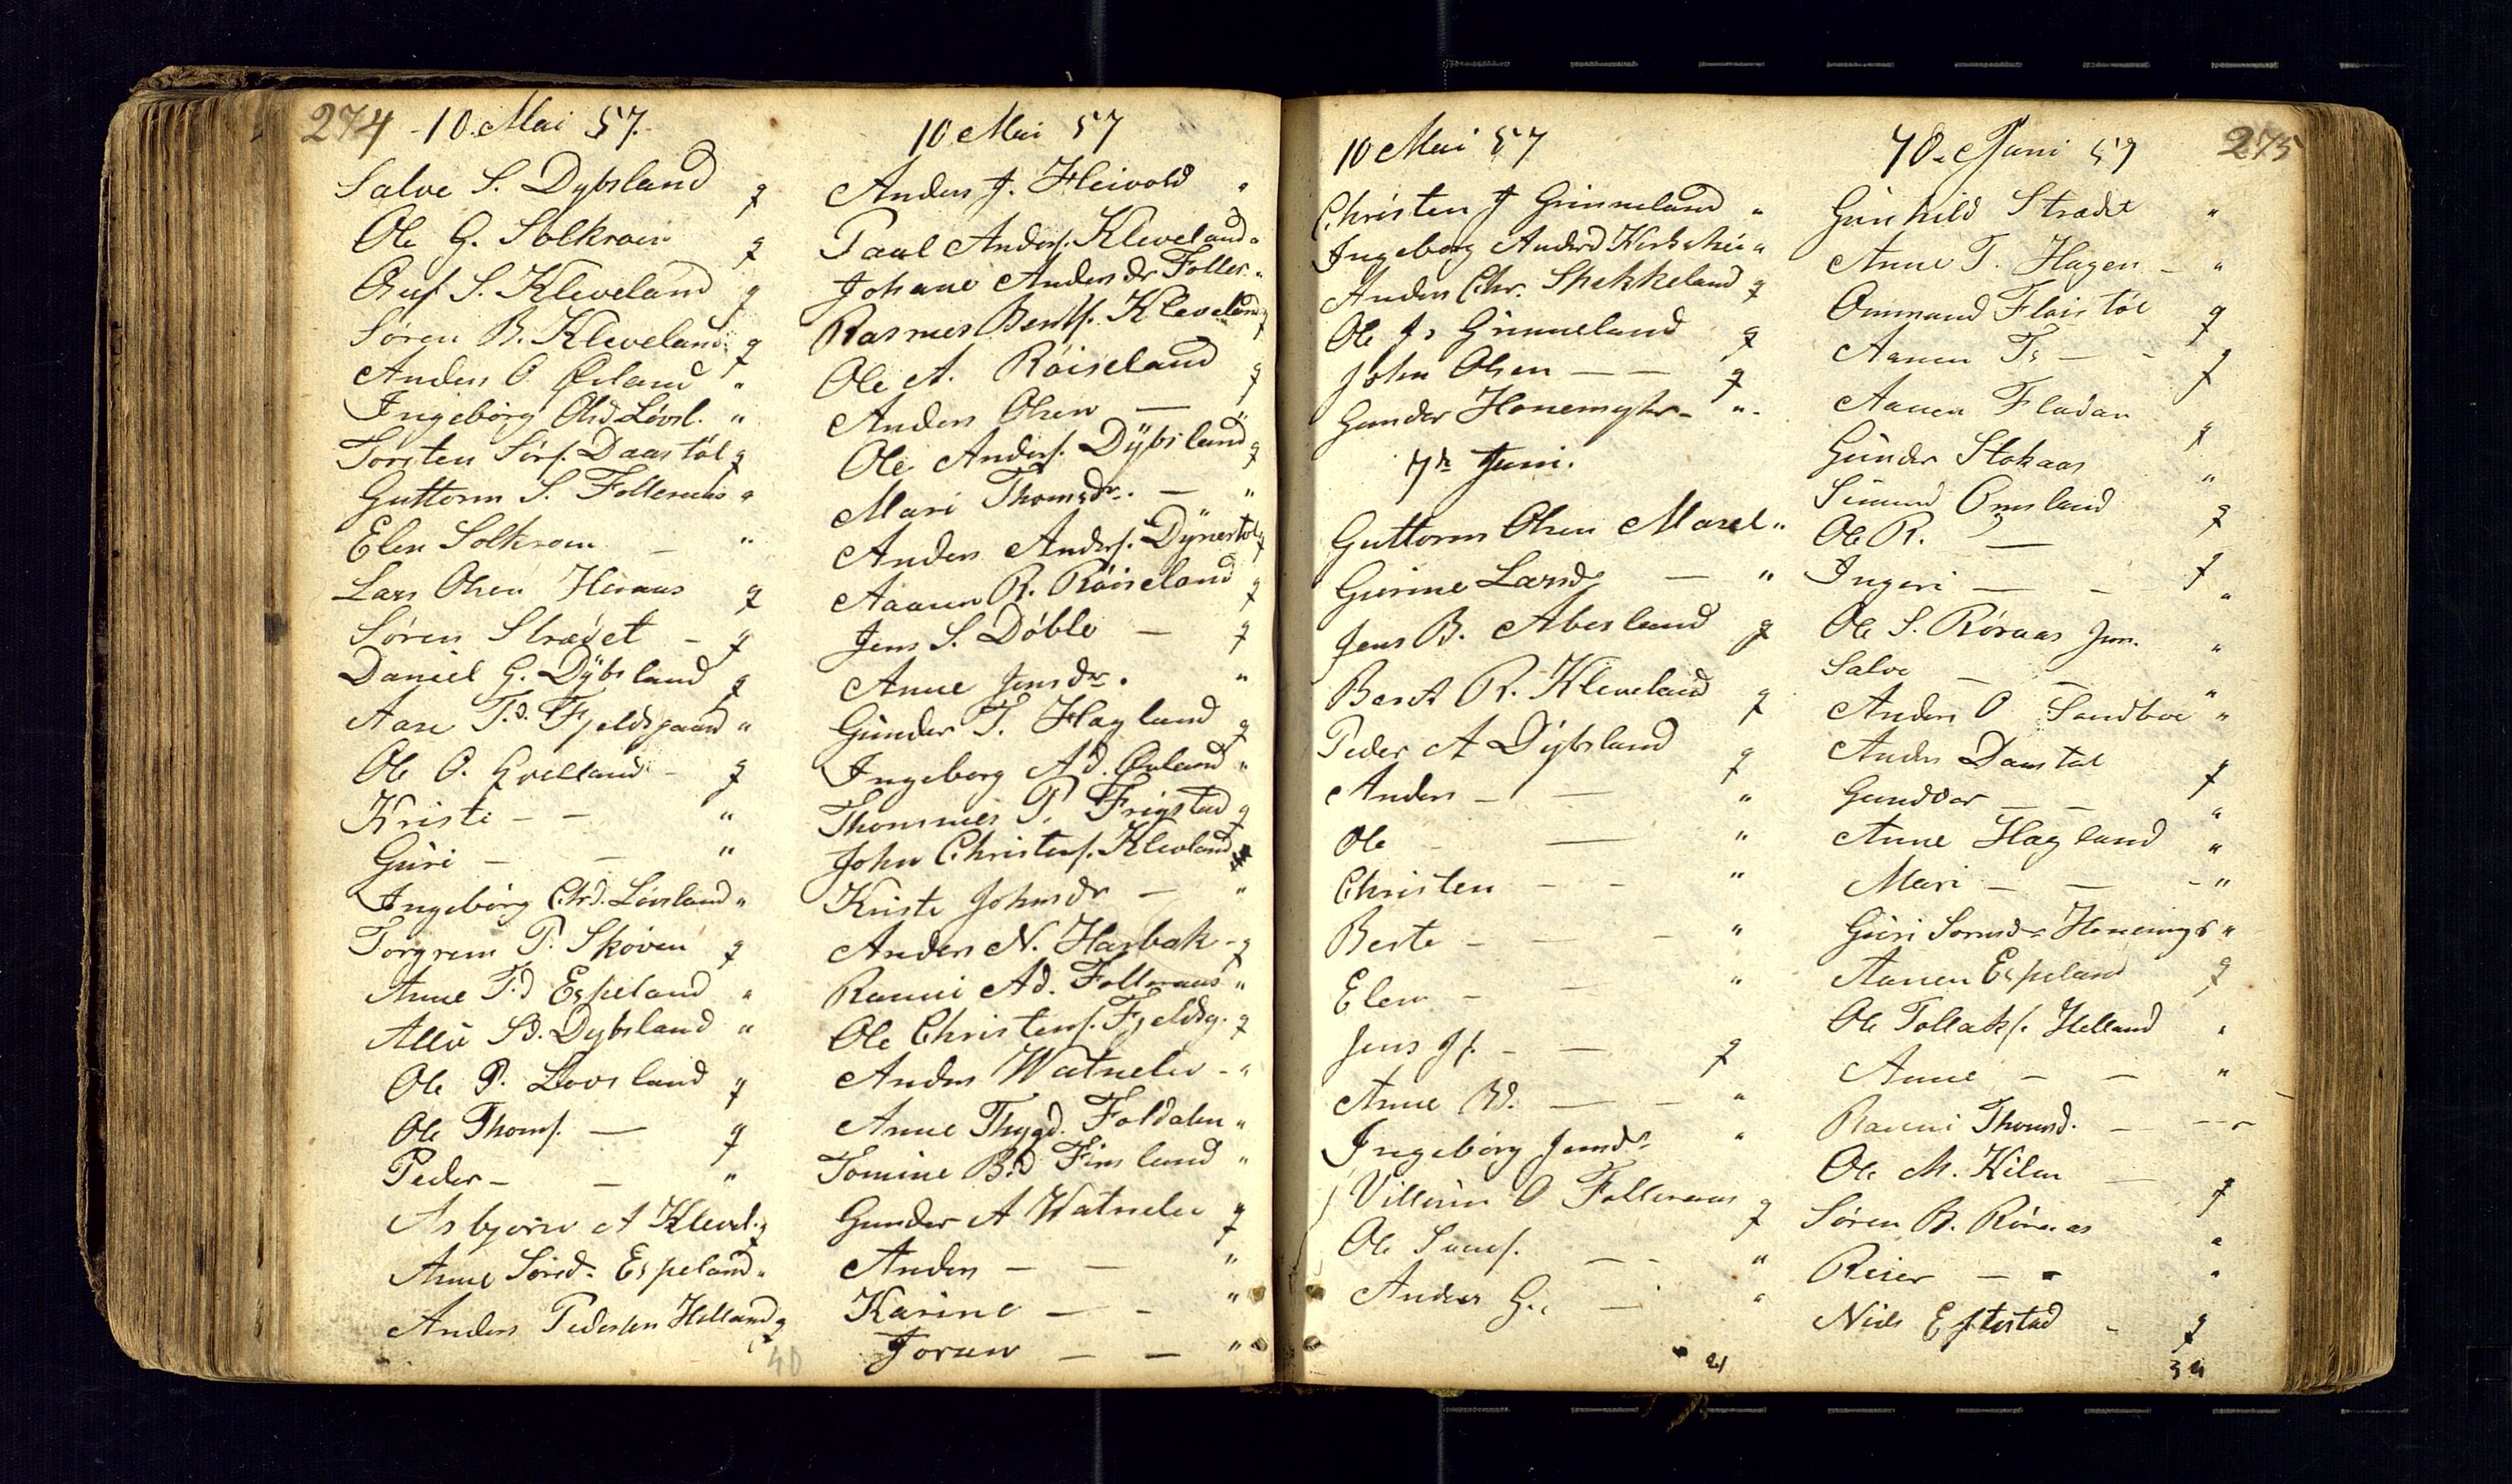 274
10. Mai 57.
Salve S. Dybsland g
Ole G. Solkroen g
Oluf S. Kleveland g
Søren B. Kleveland g
Anders O Øvland "
Ingebørg Olsd. Løvsl. "
Torsten Sørs. Daastøl g
Guttorm S. Folleraas "
Elen Solkroen — "
Lars Olsen Heraas g
Søren Strædet - g
Daniel G. Dÿbsland g
Aase T.d. Fjeldsgaard "
Ole O. Hvelland - g
Kristi - - "
Gúri - - "
Ingebørg Chrd. Løvsland "
Torgrem P. Skoven g
Anne T.d Espeland "
Alli Sd. Dybsland "
Ole P. Lovsland g
Ole Thoms. — g
Peder - - "
Asbjørn A Klevel. g
Anne Sørsd. Espeland "
Anders Pedersen Helland g
40
10 Mai 57
Anders J. Heivold "
Paul Anders. Kleveland "
Johane Andersdr Foller. "
Rasmus Bents. Kleveland g
Ole A. Røiseland g
Anders Olsen — "
Ole Anders. Dÿbsland g
Mari Thomsdr. — "
Anders Anders. Dÿnestøl g
Aanen R. Røiseland g
Jens S. Døble — g
Anne Jensdr. "
Gúnder T. Hagland g
Ingeborg Ad. Øvland "
Thommes P. Frigstad g
John Christens. Klevland
Kristi Johnsdr — "
Anders N. Harbak - g
Ranni Ad. Folleraas "
Ole Christens. Fjeldsg. g
Anders Watneliv - "
Anne Thygd. Foldalen "
Tomine B.d Finsland "
Gunder A Watneliv g
Anders - — "
Karine — - "
Joren — — "
10 Mai 57
Christen J Grinneland "
Ingeborg Andersd Kirkehei "
Anders Chr. Skekkeland g
Ole J. Grinneland g
John Olsen — — g
Gunder Honemyhr - "
7de Juni.
Guttorm Olsen Marel "
Gurine Larsd. — "
Jens B. Abesland g
Bent R. Kleveland g
Peder A Dÿbsland g
Anders - — "
Ole - — "
Christen - - "
Berte - — - "
Elen - — "
Jens Js. - — g
Anne Bd. — - "
Ingebørg Jensdr "
Villum O Folleraas g
Ole Sams. — - "
Anders G. — "
21
7de Juni 57
275
Gúnhild Strædet "
Anne T. Hagen - "
Ommund Flaistøl g
Aanen Ts — - g
Aanen Fladan g
Gúnder Stokaas "
Simund Omsland g
Ole R. — g
Ingeri — - "
Ole S. Røraas Jun. "
Salve — — "
Anders O Sandboe "
Anders Daastøl g
Gundvor — - "
Anne Hagland "
Mari - — - "
Gúri Sørensdr Honemyr "
Aanen Espeland g
Ole Tollaks. Helland "
Anne — - "
Ranni Thomsd. — - - "
Ole M. Kilen — g
Søren B. Røraas "
Reier — - "
Niels Eftestad - g
34